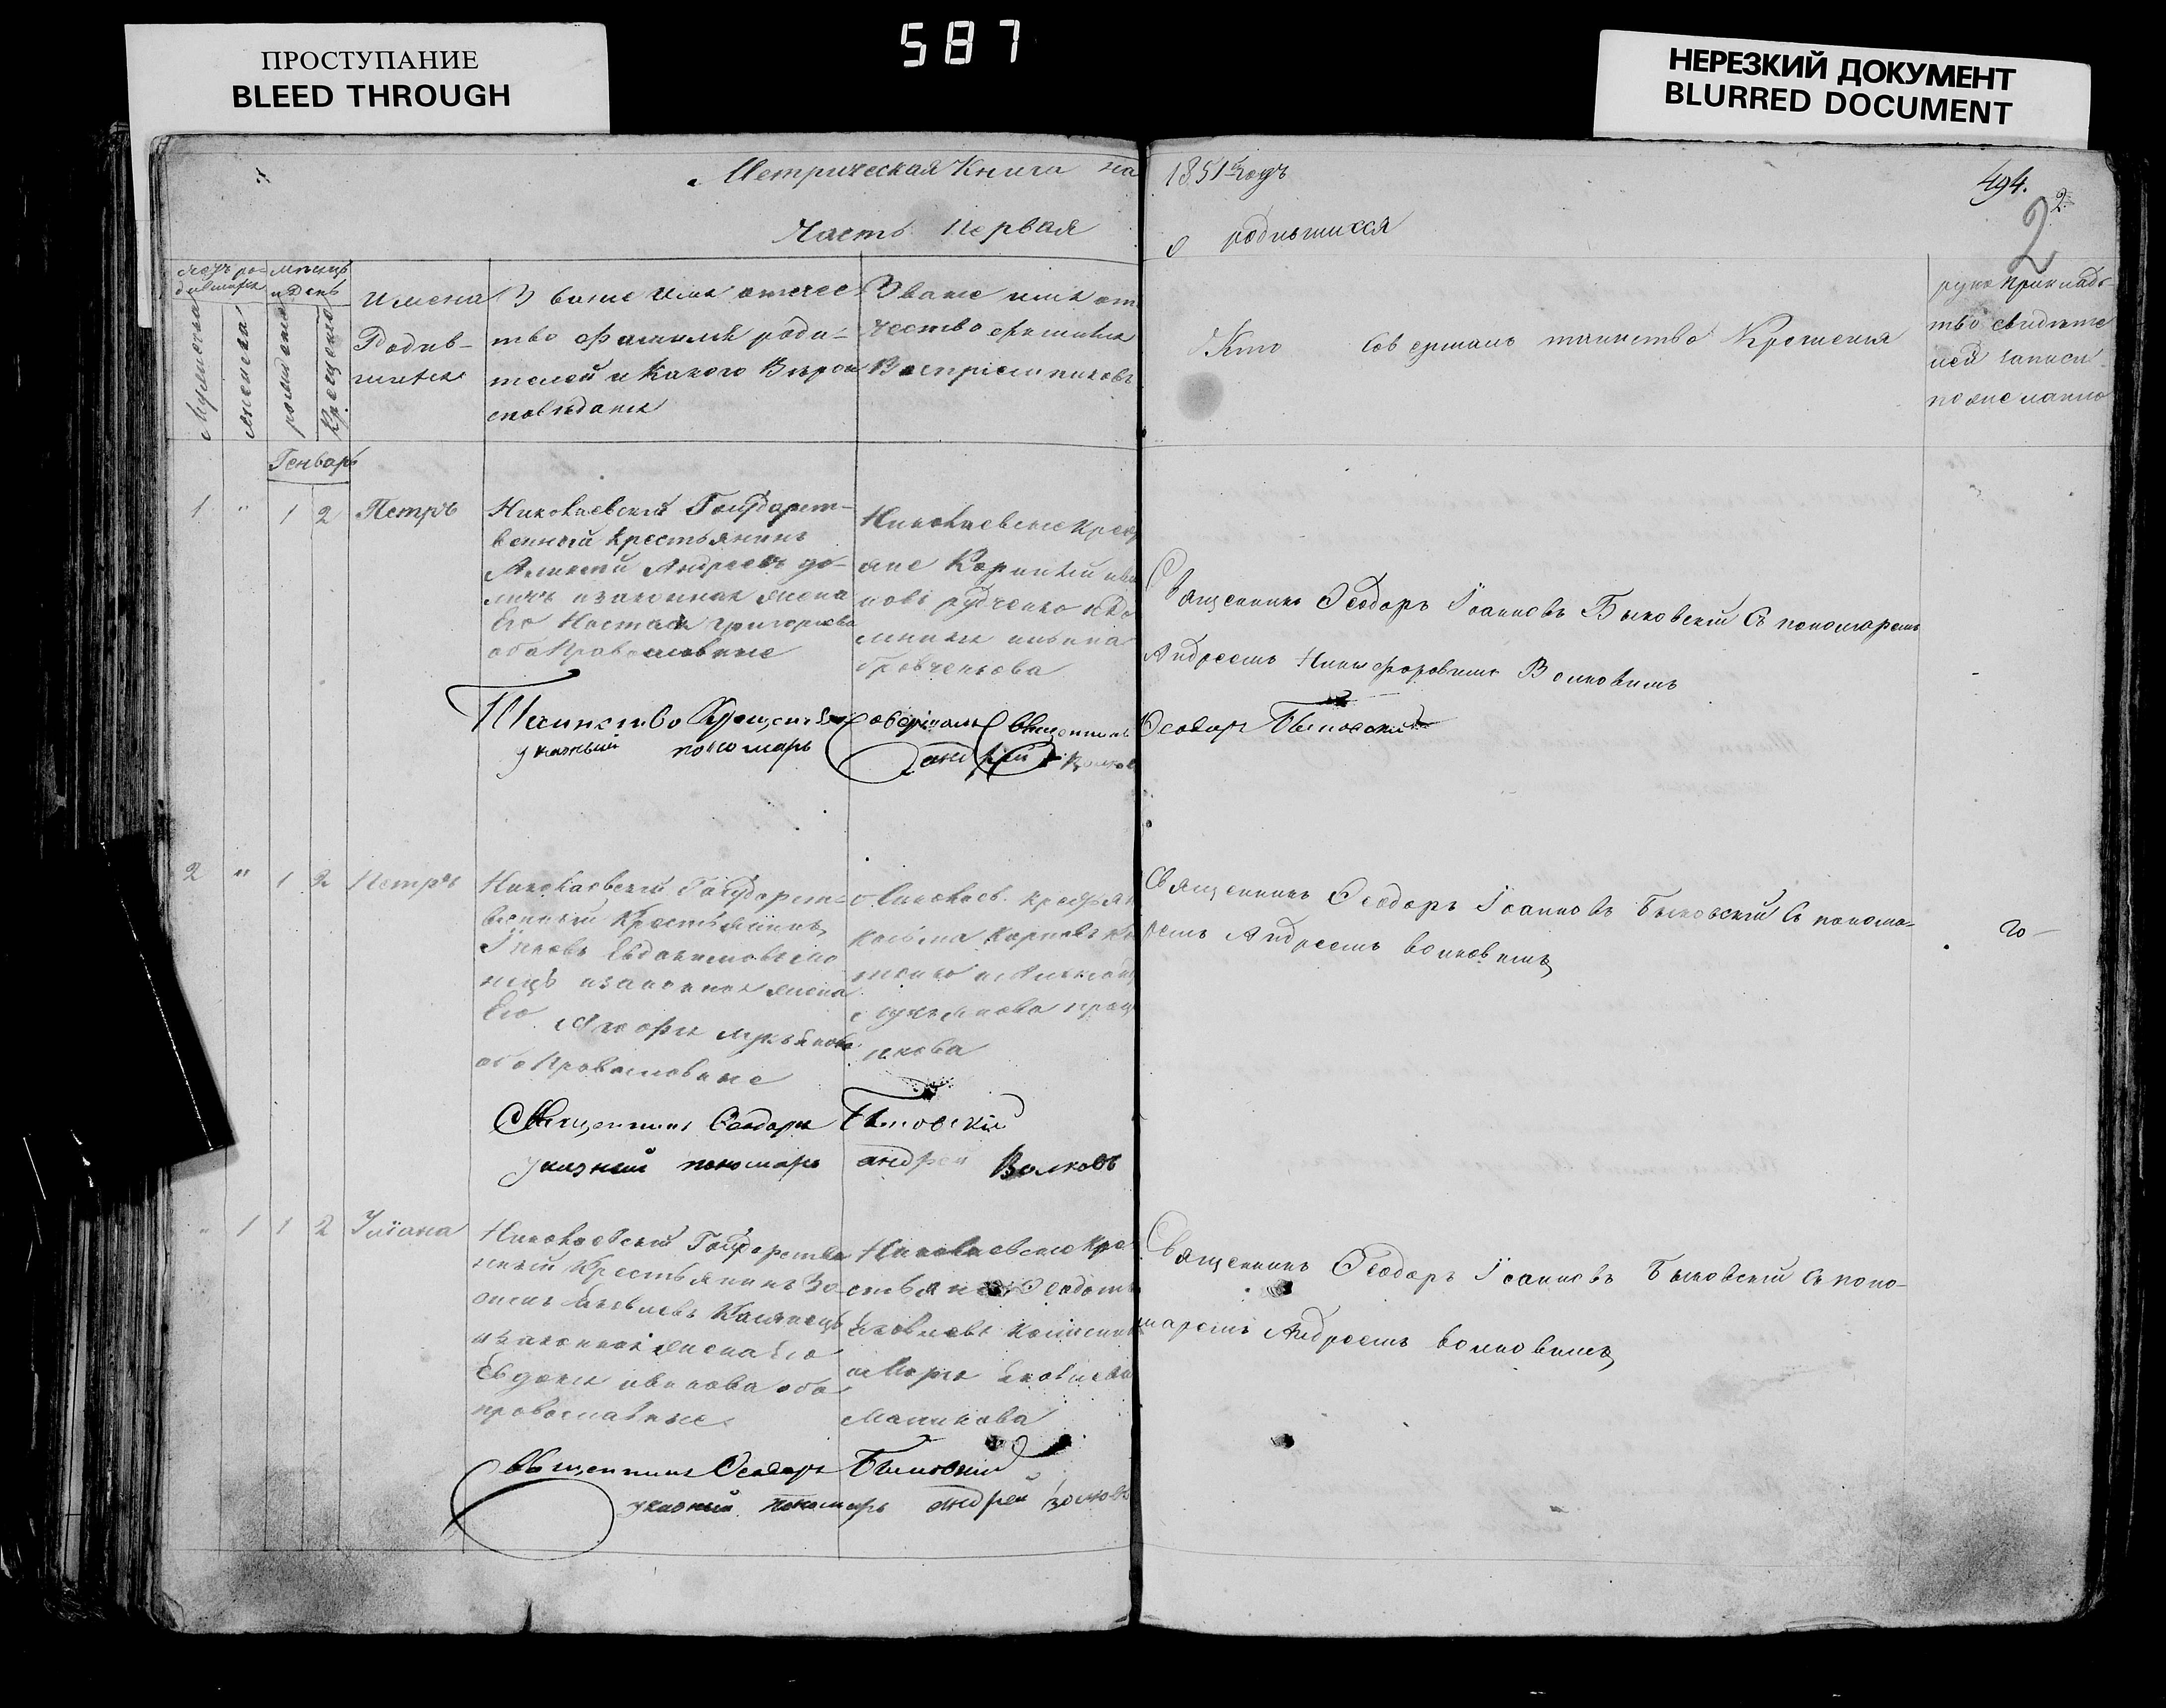 ПРОСТУПАНИЕ
BLEED THROUGH
587
НЕРЕЗКИЙ ДОКУМЕНТ
BLURRED DOCUMENT
Метрическая Книга на 1851й годъ
494.
2
2.
Часть Первая о родившихся
мѣсяцъ
и день
Мужеска
женска
рожденіе
Крещеніе
Имена
Родив-
шихся
Званіе Имя отчес-
тво Фамилія роди-
телей и Какого Вѣрои
сповѣданія
Званіе имя от
чество фамилія
Воспріемниковъ
Кто Совершалъ таинство Крещенія
руко прикладс
тво свидѣте
лей записи
по желанію
Генварь
1 " 1 2 Петръ
Николаевскій Государст-
венный Крестьянинъ
Алексѣй Андреевъ
и законная жена
Его Настасія Григорьева
оба Православные
Николаевские Крест
яне Корнилій ива
новъ
Священникъ Ѳеодоръ Іоанновъ Быковскій Съ пономаремъ
Андреемъ Никифоровымъ Волковымъ
Таинство Крещенія Совершалъ Священникъ Ѳеодоръ Быковскій
указный пономарь андрей Волков
2 " 1 2 Петръ
Николаевскій Государст-
венный Крестьянинъ
Іяковъ Евдокимовъ
и законная жена
Его Лукьянова
оба Православные
козьма Карповъ
Священникъ Ѳеодоръ Іоанновъ Быковскій Съ понома-
ремъ Андреемъ волковымъ
Священникъ Ѳеодоръ Быковскій
указный пономарь андрей Волковъ
" 1 1 2 Уліана
Николаевскій Государстве
нный Крестьянинъ
Яковлевъ
и законная жена Его
Евдокія иванова оба
православные
Николаевские Кре
стьяне Ѳедотъ
Яковлевъ
и Марія Яковлева
Маликова
Священникъ Ѳеодоръ Іоанновъ Быковскій Съ поно-
маремъ Андреемъ волковымъ
Священникъ Ѳеодоръ Быковскій
указный пономарь андрей Волковъ